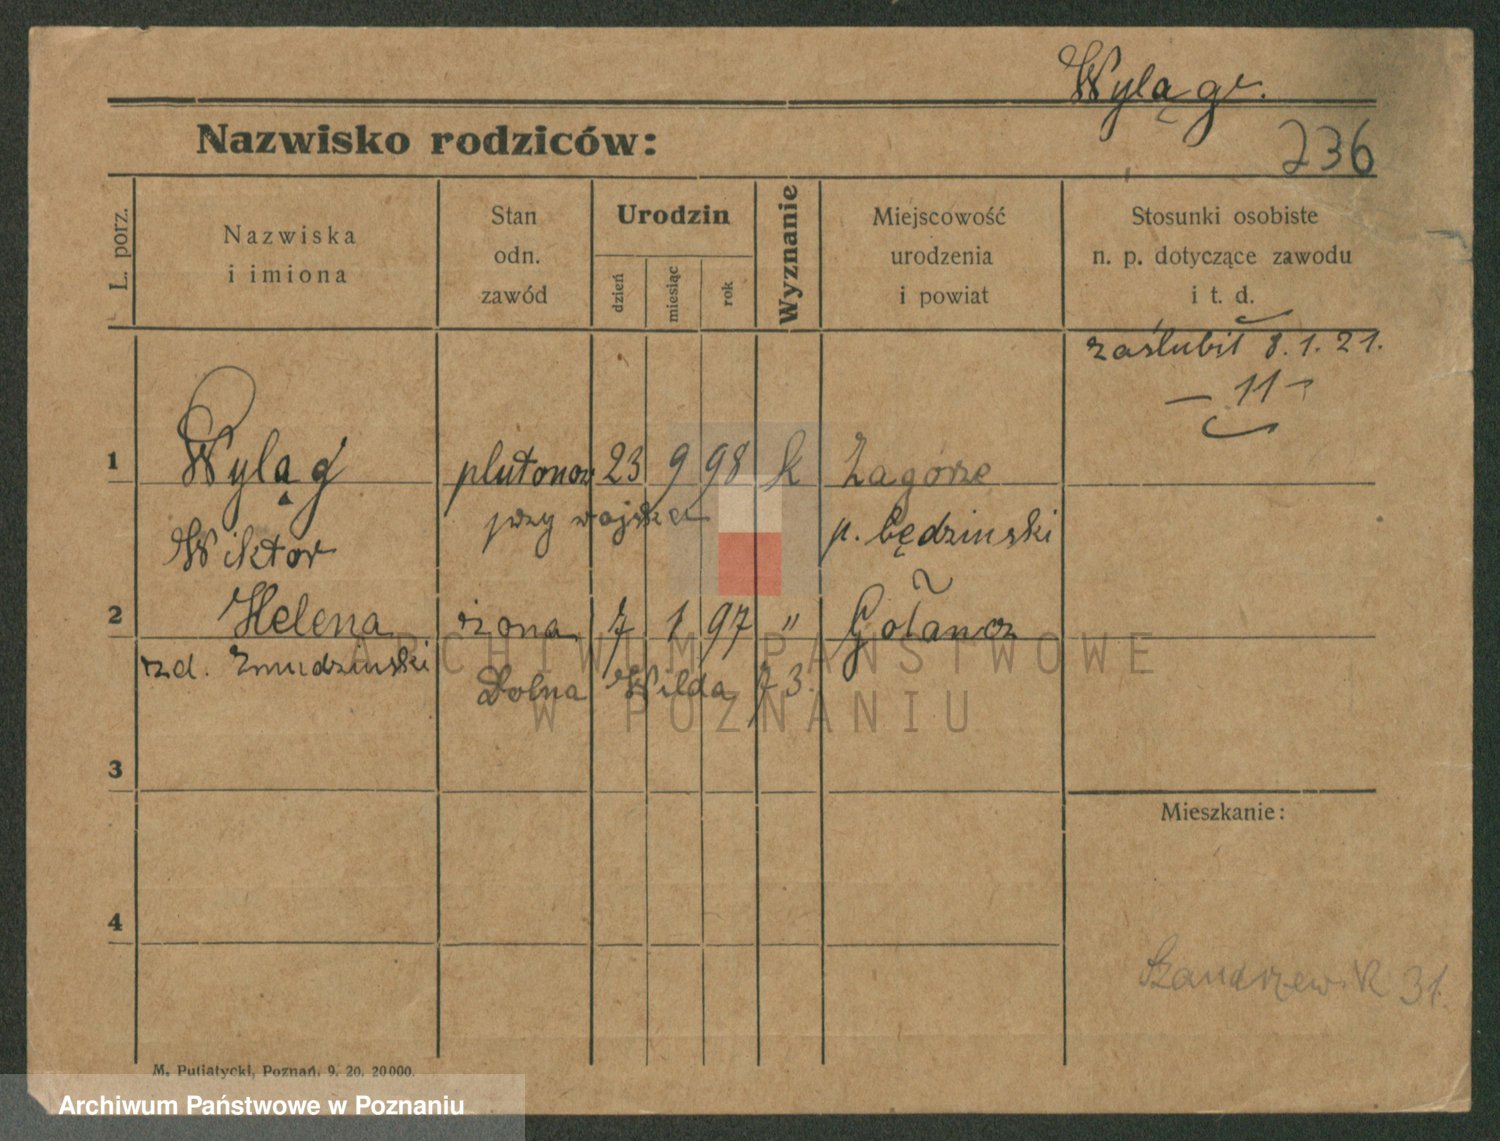 Wyląg
Nazwisko rodziców:
236
L. porz.
Nazwiska
i imiona
Stan
odn.
zawód
Urodzin
dzień
miesiąc
rok
Wyznanie
Miejscowość
urodzenia
i powiat
Stosunki osobiste
n. p. dotyczące zawodu
i t. d.
zaślubił 8.1.21.
— 11 —
1 Wyląg plutonow 23 9 98 k Zagórze
przy wojsku p. będzinski
Wiktor
2 Helena żona 7 1 97 " Gołancz
rzd. Zmudzinski
Dolna Wilda 73.
3
Mieszkanie:
4
31.
M. Putiatycki, Poznań. 9. 20. 20000.
ARCHIWUM PAŃSTWOWE
W POZNANIU
Archiwum Państwowe w Poznaniu